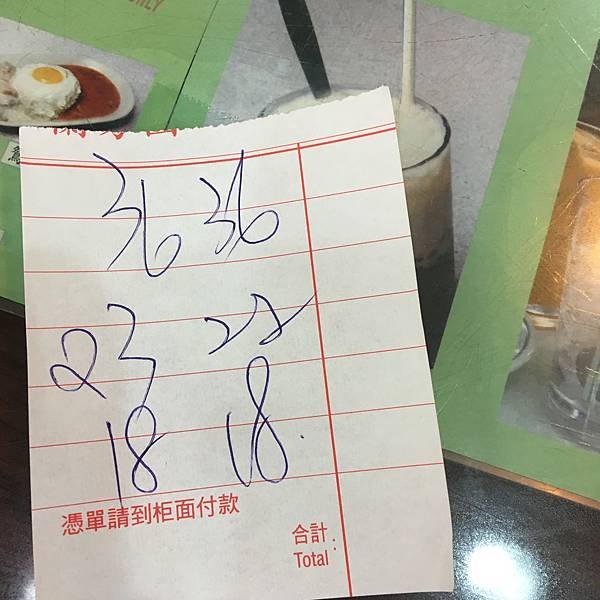 36 36
23 22
18 18.
憑單請到柜面付款
合計:
Total